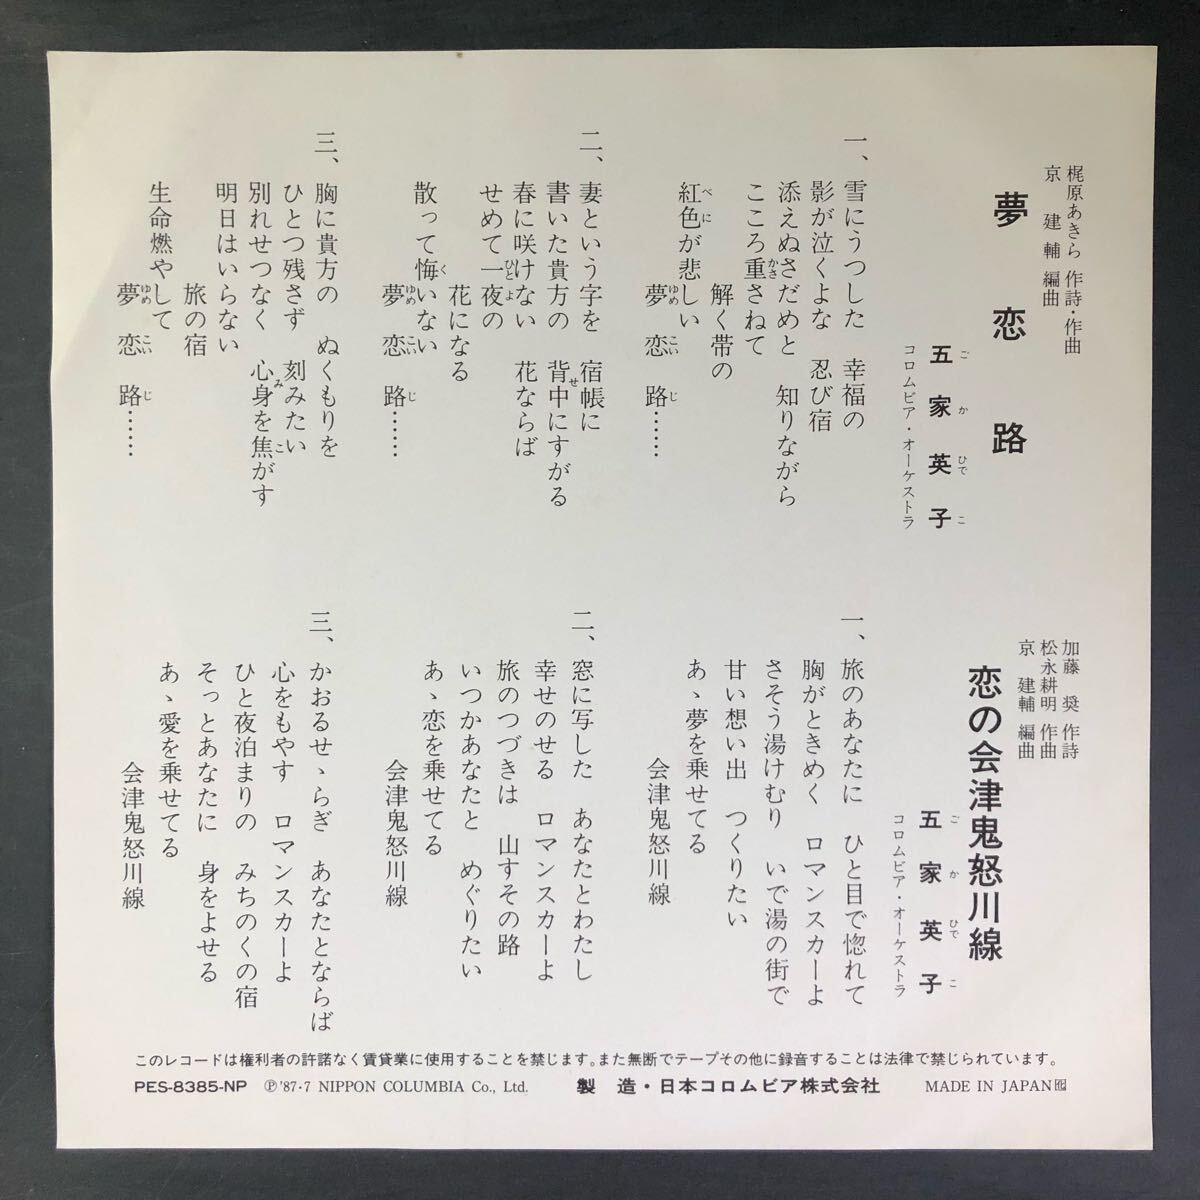 夢恋路
梶原あきら 作詩・作曲
京 建輔 編曲
五家英子
ごかひでこ
コロムビア・オーケストラ
一、雪にうつした 幸福の
影が泣くよな 忍び宿
添えぬさだめと 知りながら
こころ重さねて
かさ
解く帯の
紅色が悲しい
べに
夢恋路……
ゆめこいじ
二、妻という字を 宿帳に
書いた貴方の 背中にすがる
せ
春に咲けない 花ならば
せめて一夜の
ひとよ
花になる
散って悔いない
く
夢恋路……
ゆめこいじ
三、胸に貴方の ぬくもりを
ひとつ残さず 刻みたい
別れせつなく 心身を焦がす
みこ
明日はいらない
旅の宿
生命燃やして
夢恋路……
ゆめこいじ
恋の会津鬼怒川線
加藤 奨 作詩
松永耕明 作曲
京 建輔 編曲
五家英子
ごかひでこ
コロムビア・オーケストラ
一、旅のあなたに ひと目で惚れて
胸がときめく ロマンスカーよ
さそう湯けむり いで湯の街で
甘い想い出 つくりたい
あゝ夢を乗せてる
会津鬼怒川線
二、窓に写した あなたとわたし
幸せのせる ロマンスカーよ
旅のつづきは 山すその路
いつかあなたと めぐりたい
あゝ恋を乗せてる
会津鬼怒川線
三、かおるせゝらぎ あなたとならば
心をもやす ロマンスカーよ
ひと夜泊まりの みちのくの宿
そっとあなたに 身をよせる
あゝ愛を乗せてる
会津鬼怒川線
このレコードは権利者の許諾なく賃貸業に使用することを禁じます。また無断でテープその他に録音することは法律で禁じられています。
PES-8385-NP ℗'87・7 NIPPON COLUMBIA Co., Ltd. 製 造・日本コロムビア株式会社 MADE IN JAPAN